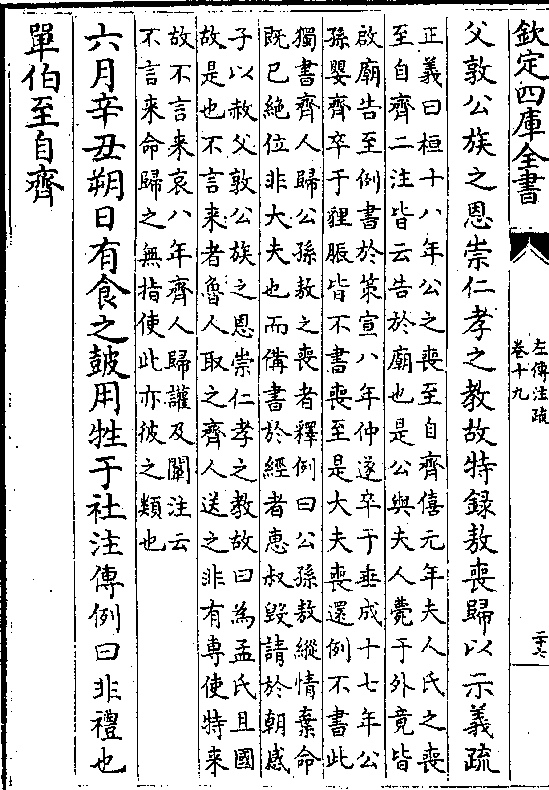 欽定四庫全書
左傳注疏
卷十九
二七
父敦公族之恩崇仁孝之教故特録敖喪歸以示義疏
正義曰桓十八年公之喪至自齊僖元年夫人氏之喪
至自齊二注皆云告於廟也是公與夫人薨于外竟皆
啟廟告至例書於策宣八年仲遂卒于垂成十七年公
孫嬰齊卒于貍脤皆不書喪至是大夫喪還例不書此
獨書齊人歸公孫敖之喪者釋例曰公孫敖縱情棄命
既已絶位非大夫也而備書於經者惠叔毀請於朝感
子以赦父敦公族之恩崇仁孝之教故曰為孟氏且國
故是也不言来者魯人取之齊人送之非有専使特来
故不言来哀八年齊人歸讙及闡注云
不言来命歸之無指使此亦彼之類也
六月辛丑朔日有食之鼓用牲于社注傳例曰非禮也
單伯至自齊